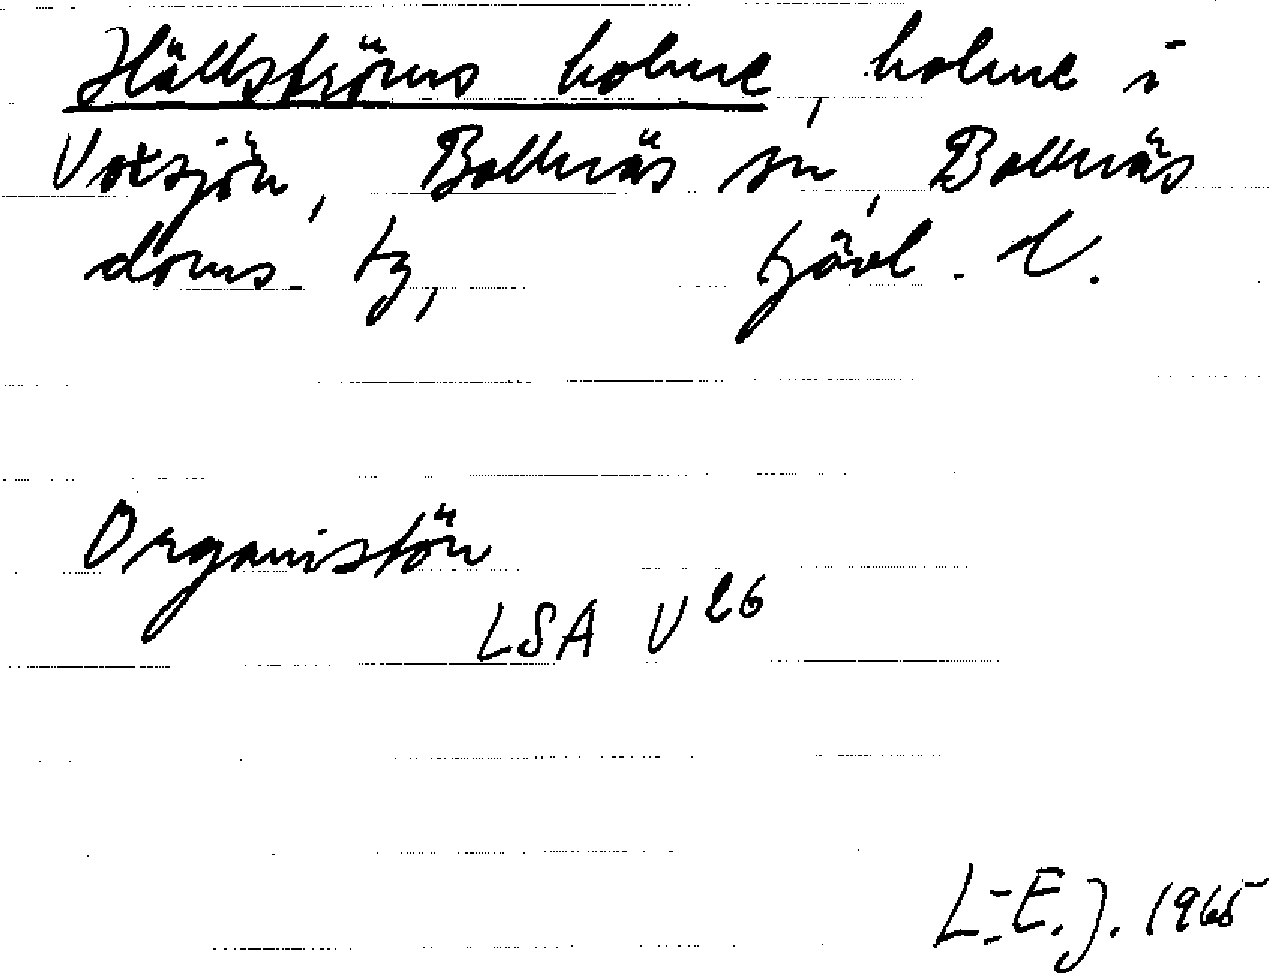 Hällströms holme, holme i
Votsjön, Bollnäs sn, Bollnäs
doms. tg, Gävl. l.
Organistön
LSA V 26
L-E. J. 1965